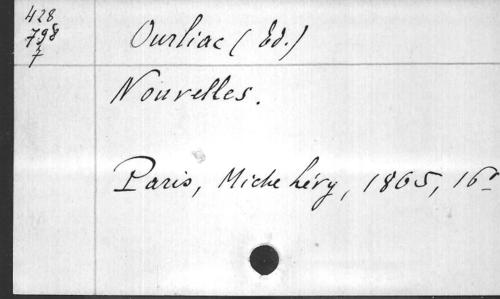 428
798
7
Ourliac (Ed.)
Nouvelles.
Paris, Miche Lévy, 1865, 16º